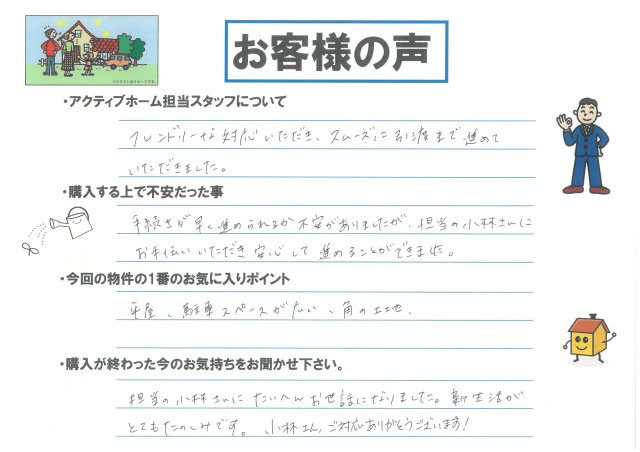 お客様の声
※イラストはイメージです。
・アクティブホーム担当スタッフについて
フレンドリーな対応いただき、スムーズに引渡まで進めて
いただきました。
・購入する上で不安だった事
手続きが早く進められるか不安がありましたが、担当の小林さんに
お手伝いいただき安心して進めることができました。
・今回の物件の1番のお気に入りポイント
平屋、駐車スペースが広い、角の土地.
・購入が終わった今のお気持ちをお聞かせ下さい。
担当の小林さんにたいへんお世話になりました。新生活が
とてもたのしみです。小林さん、ご対応ありがとうございます!